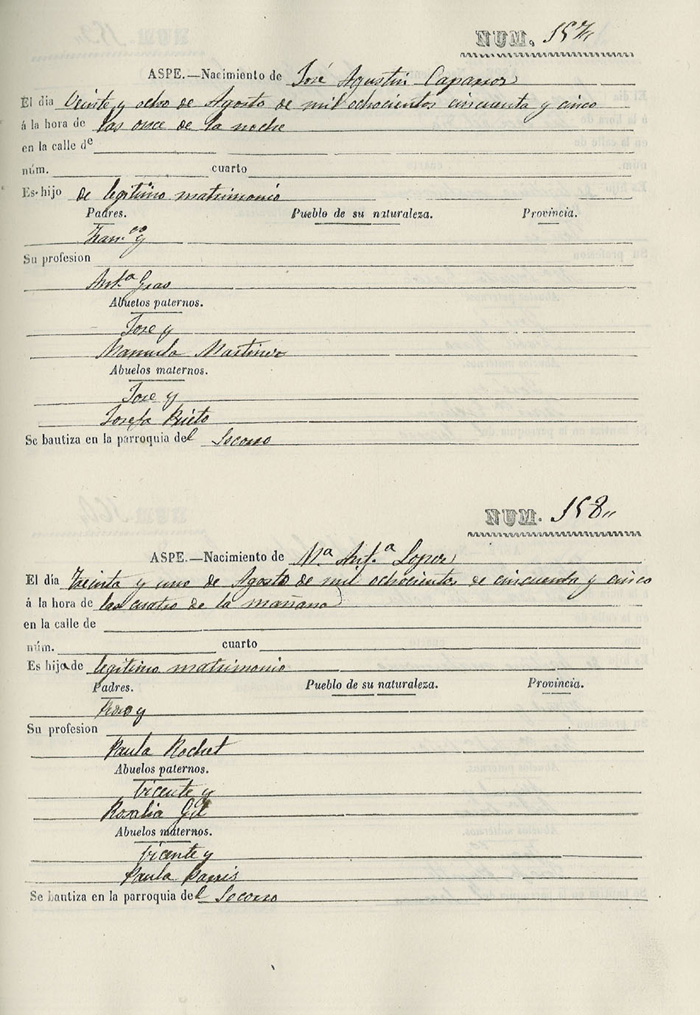 NUM. 157
ASPE.—Nacimiento de José Agustin Caparros
El dia Veinte y ocho de Agosto de mil ochocientos cincuenta y cinco
á la hora de las once de la noche
en la calle de
núm. cuarto
Es hijo de legitimo matrimonio
Padres. Pueblo de su naturaleza. Provincia.
Fran.co y
Su profesion
Ant.a Gras
Abuelos paternos.
Jose y
Manuela Martinez
Abuelos maternos.
Jose y
Josefa Prieto
Se bautiza en la parroquia del Socorro
NUM. 158
ASPE.—Nacimiento de M.a Ant.a Lopez
El dia Treinta y uno de Agosto de mil ochocientos de cincuenta y cinco
á la hora de las cuatro de la mañana
en la calle de
núm. cuarto
Es hija de legitimo matrimonio
Padres. Pueblo de su naturaleza. Provincia.
y
Su profesion
Paula
Abuelos paternos.
Vicente y
Rosalia Gil
Abuelos maternos.
Vicente y
Paula
Se bautiza en la parroquia del Socorro